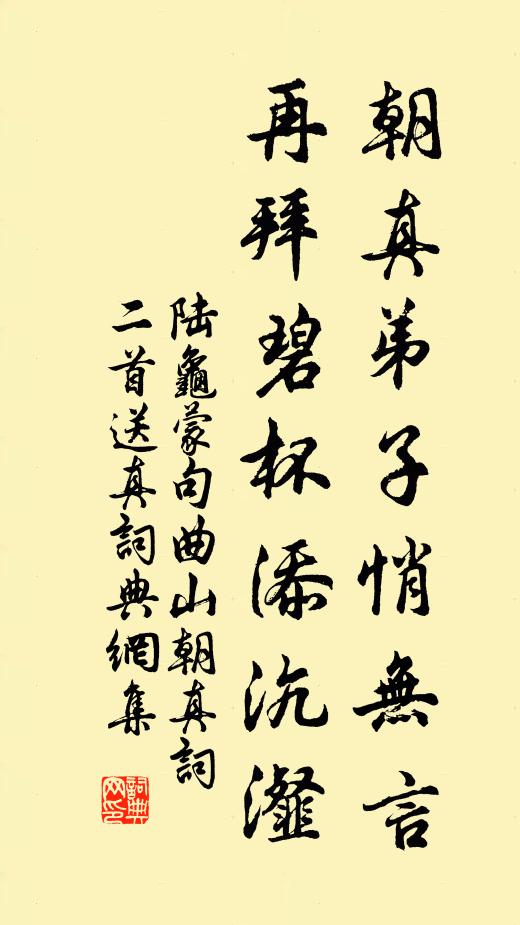 朝真弟子悄無言
再拜碧杯添沆瀣
陆龜蒙句曲山朝真詞
二首送真詞典網集
詞典网印